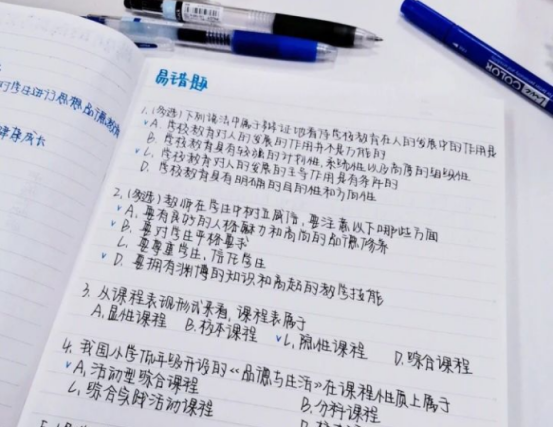 对学生进行思想品德教育
健康成长
易错题
1.(多选)下列说法中属于辩证地看待学校教育在人的发展中的作用是
A. 学校教育对人的发展的作用并不是万能的
B. 学校教育具有较强的计划性、系统性以及高度的组织性
C. 学校教育对人的发展的主导作用是有条件的
D. 学校教育具有明确的目的性和方向性
2.(多选)教师在学生中树立威信,要注意以下哪些方面
A. 要有良好的人格魅力和高尚的品德修养
B. 要对学生严格要求
C. 要尊重学生,信任学生
D. 要拥有渊博的知识和高超的教学技能
3. 从课程表现形式来看,课程表属于
A.显性课程 B.校本课程 C.隐性课程 D.综合课程
4. 我国小学低年级开设的《品德与生活》在课程性质上属于
A.活动型综合课程 B.分科课程
C.综合实践活动课程